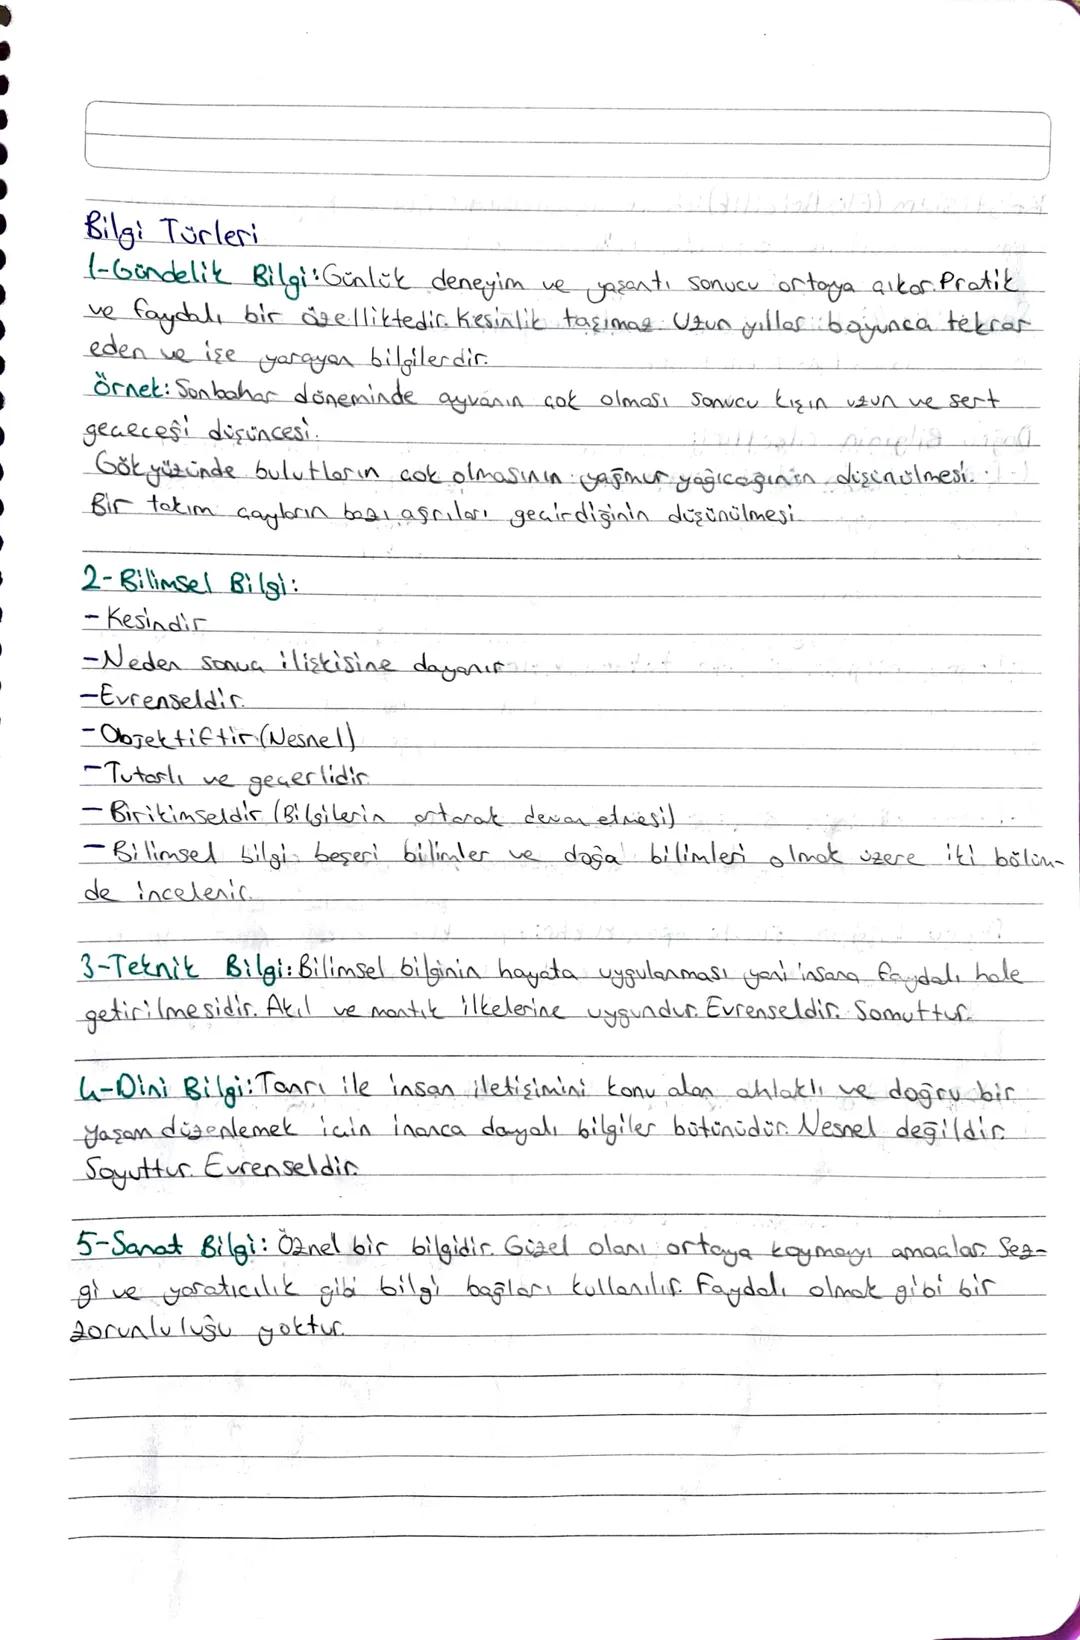 Bilgi Türleri
1-Gündelik Bilgi: Günlük deneyim ve yaşantı sonucu ortaya çıkar. Pratik
ve faydalı bir özelliktedir. Kesinlik taşımaz. Uzun yıllar boyunca tekrar
eden ve işe yarayan bilgilerdir.
Örnek: Sonbahar döneminde ayvanın çok olması sonucu kışın uzun ve sert
geçeceği düşüncesi.
Gökyüzünde bulutların çok olmasının yağmur yağıcağının düşünülmesi.
Bir takım çayların bazı ağrıları geçirdiğinin düşünülmesi
2-Bilimsel Bilgi:
-Kesindir
-Neden sonuç ilişkisine dayanır
-Evrenseldir.
-Objektiftir (Nesnel)
-Tutarlı ve geçerlidir.
-Birikimseldir (Bilgilerin artarak devam etmesi)
-Bilimsel bilgi beşeri bilimler ve doğa bilimleri olmak üzere iki bölüm-
de incelenir.
3-Teknik Bilgi: Bilimsel bilginin hayata uygulanması yani insana faydalı hale
getirilmesidir. Akıl ve mantık ilkelerine uygundur. Evrenseldir. Somuttur.
4-Dini Bilgi: Tanrı ile insan iletişimini konu alan ahlaklı ve doğru bir
yaşam düzenlemek için inanca dayalı bilgiler bütünüdür. Nesnel değildir.
Soyuttur. Evrenseldir.
5-Sanat Bilgi: Öznel bir bilgidir. Güzel olanı ortaya koymayı amaçlar. Sez-
gi ve yaratıcılık gibi bilgi bağları kullanılır. Faydalı olmak gibi bir
zorunluluğu yoktur.